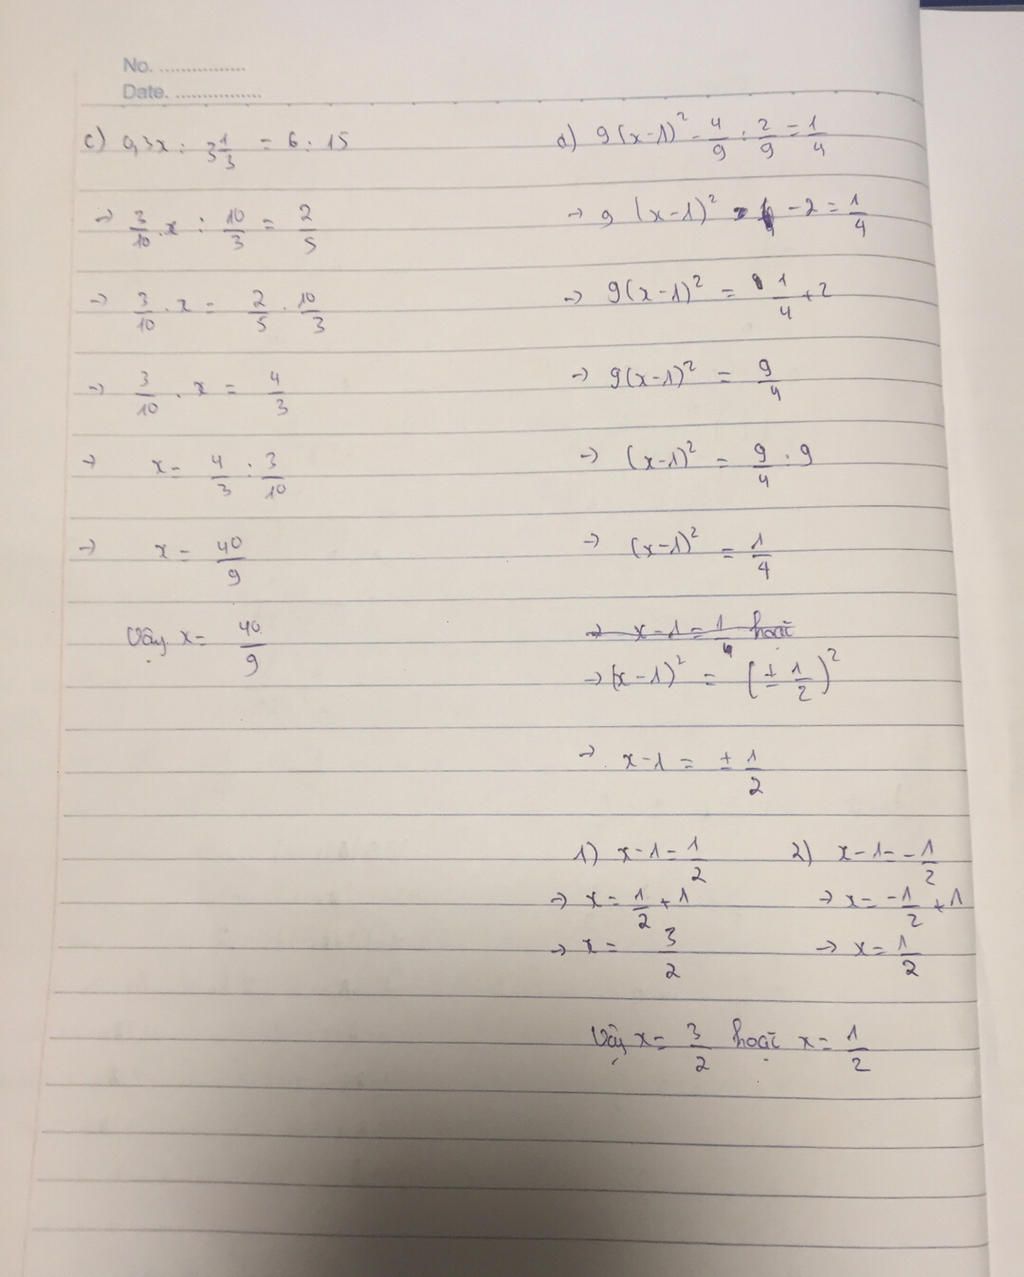 No. ................
Date. ................
c) 0,3x : 3 1/3 = 6 : 15
→ 3/10 . x : 10/3 = 2/5
→ 3/10 . x = 2/5 . 10/3
→ 3/10 . x = 4/3
→ x = 4/3 : 3/10
→ x = 40/9
Vậy x = 40/9
d) 9(x-1)² - 4/9 : 2/9 = 1/4
→ 9(x-1)² - 2 = 1/4
→ 9(x-1)² = 1/4 + 2
→ 9(x-1)² = 9/4
→ (x-1)² = 9/4 : 9
→ (x-1)² = 1/4
→ x-1 = 1/4 hoặc
→ (x-1)² = (± 1/2)²
→ x-1 = ± 1/2
1) x-1 = 1/2
→ x = 1/2 + 1
→ x = 3/2
2) x-1 = -1/2
→ x = -1/2 + 1
→ x = 1/2
Vậy x = 3/2 hoặc x = 1/2